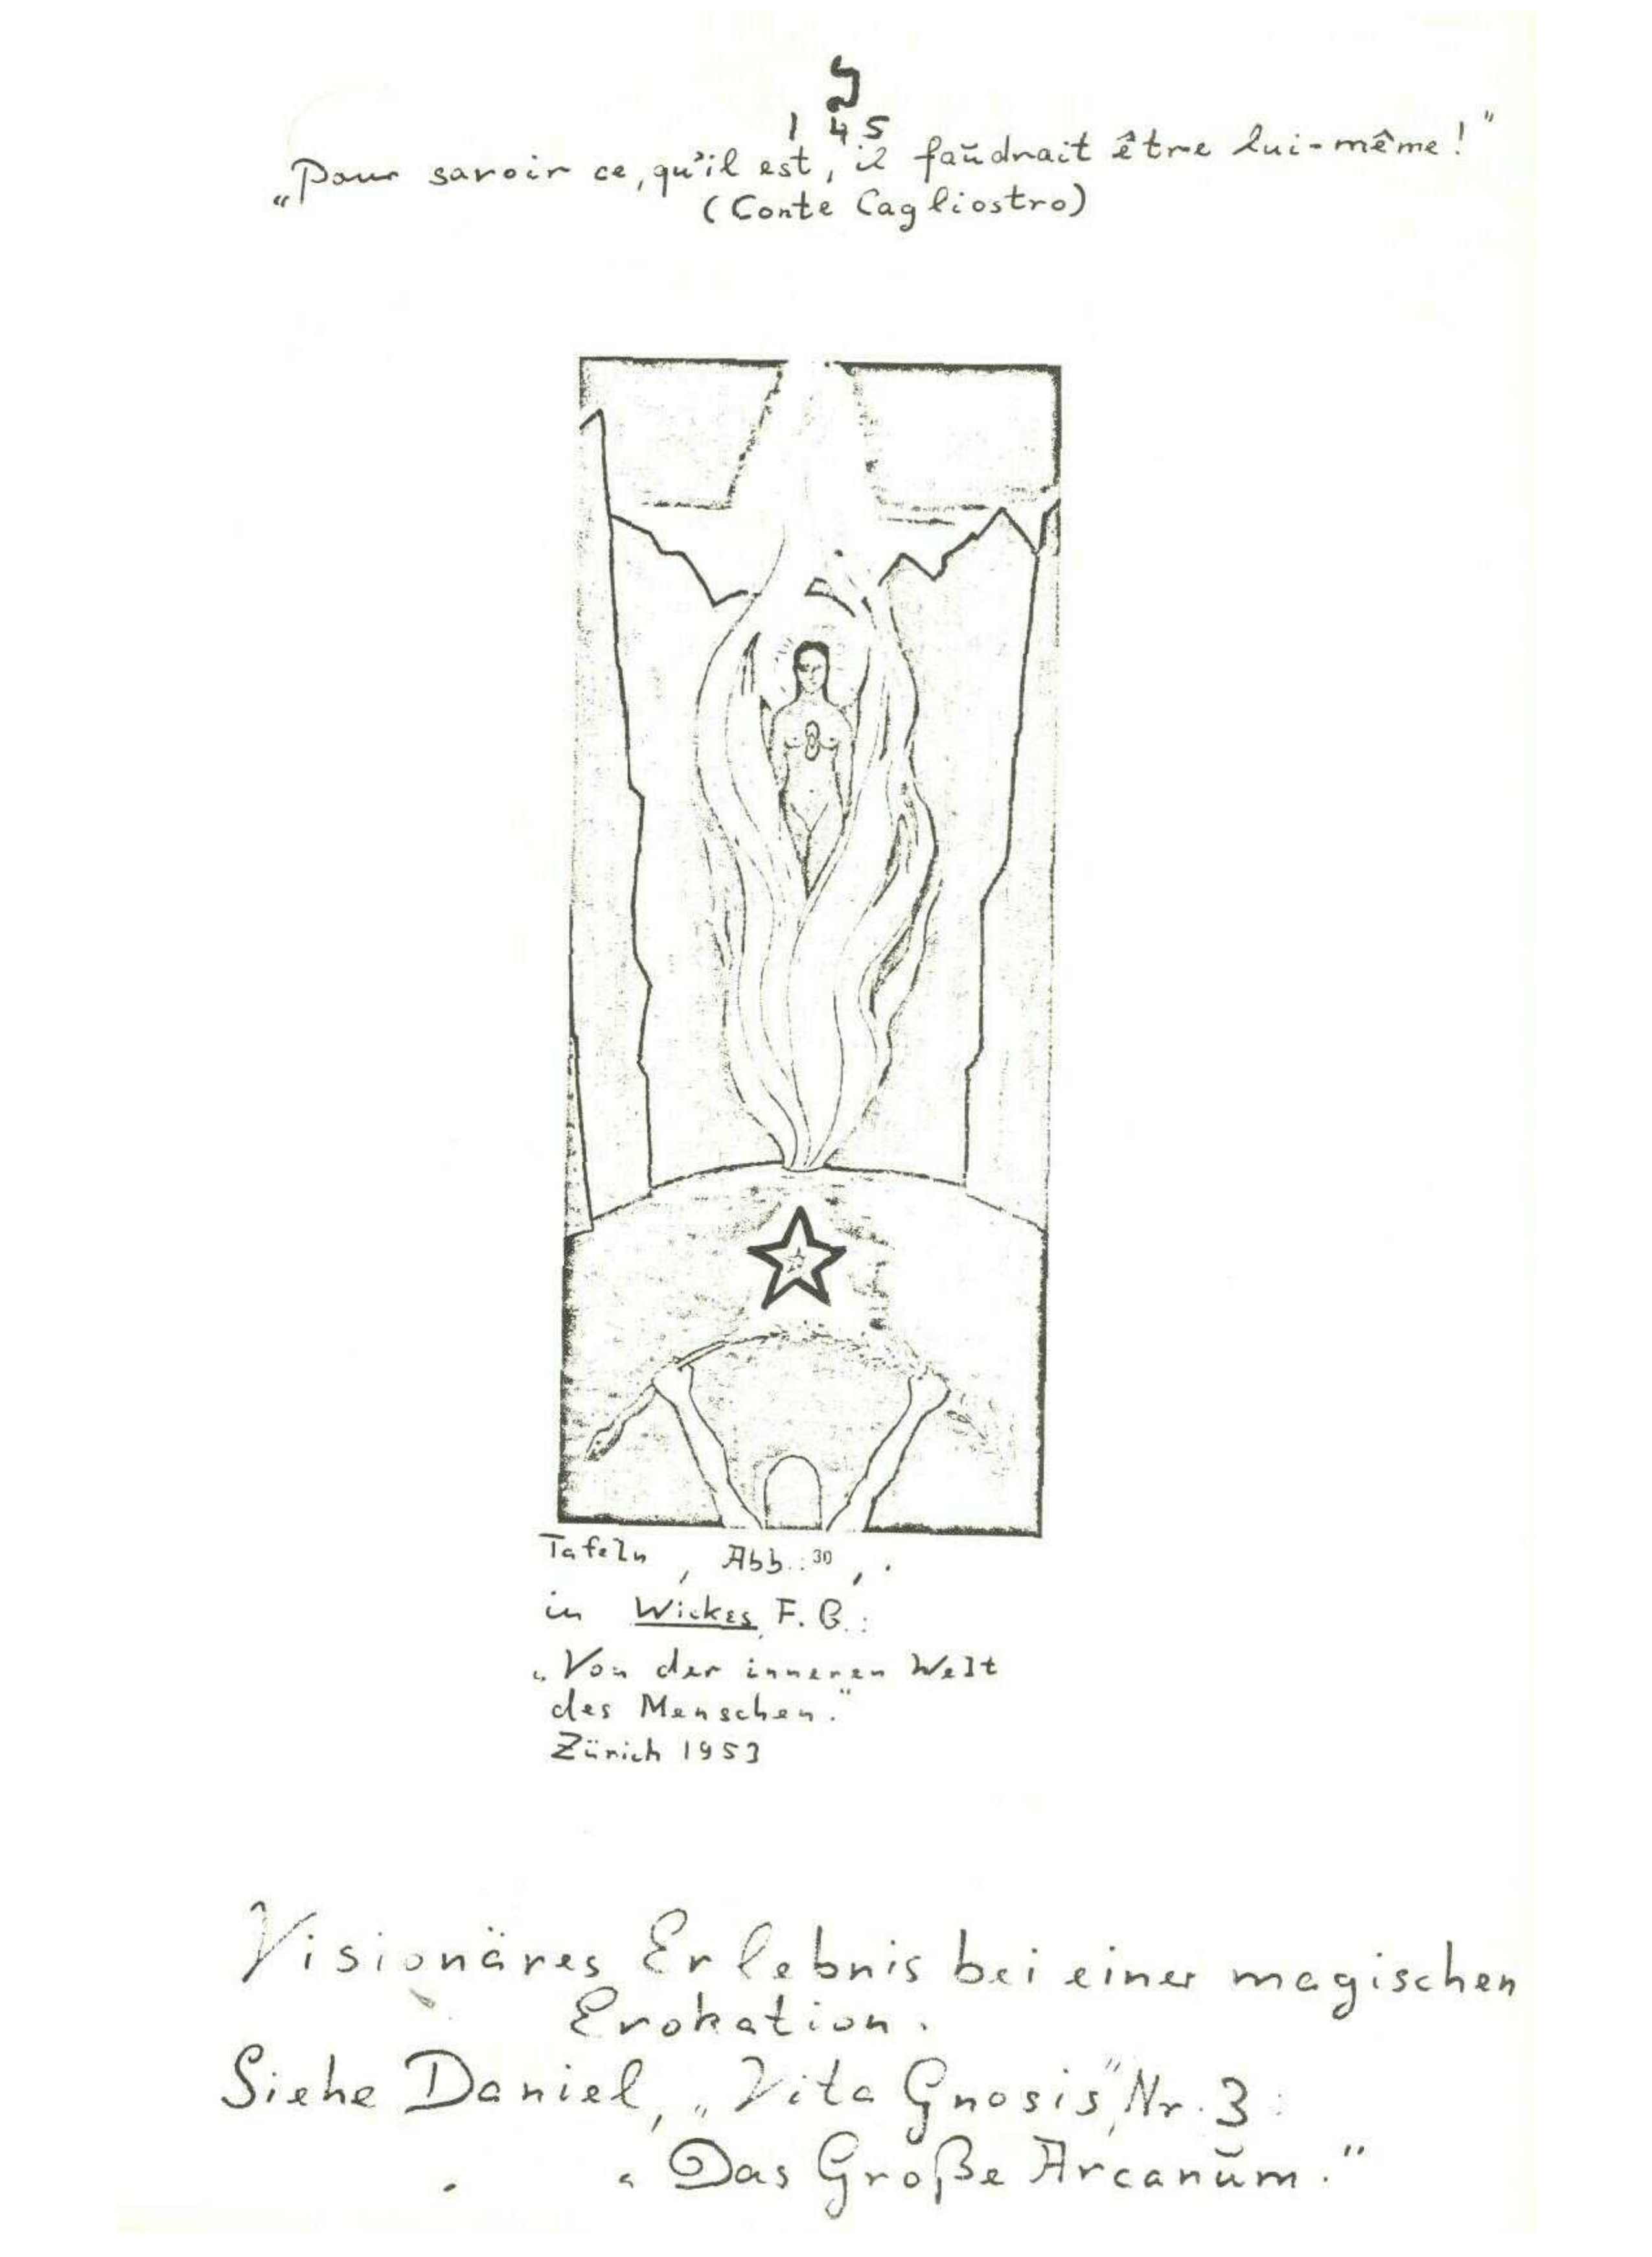 1 45
„Pour savoir ce, qu'il est, il faŭdrait être lui-même!"
(Conte Cagliostro)
Tafeln, Abb.: 30,.
in Wickes, F. G.:
„Von der inneren Welt
des Menschen."
Zürich 1953
Visionäres Erlebnis bei einer magischen
Evokation.
Siehe Daniel, „Vita Gnosis", Nr. 3:
„Das Große Arcanŭm."